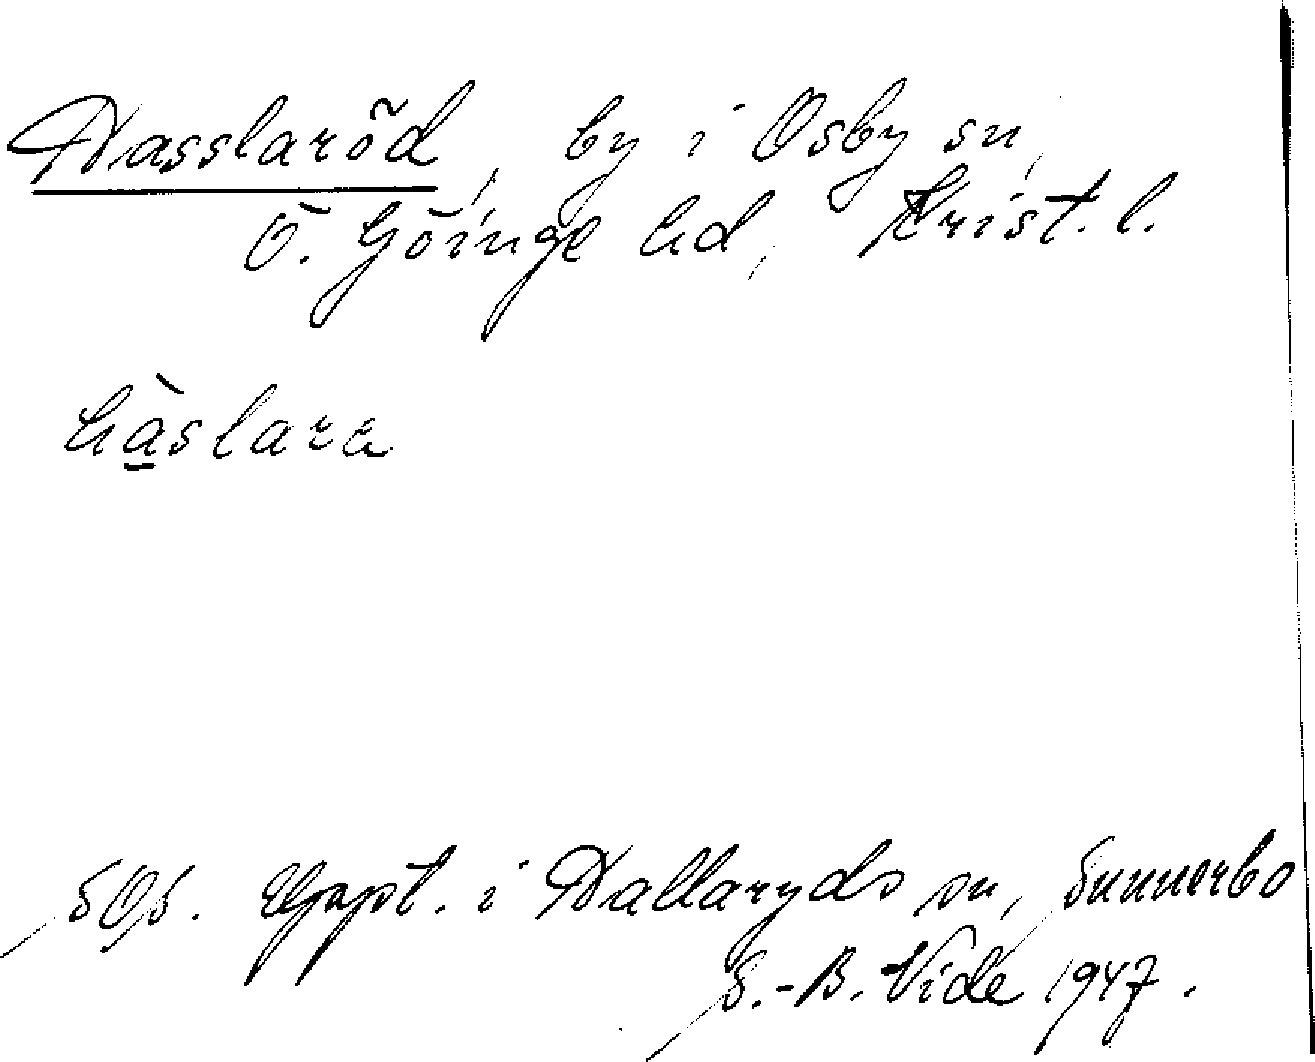 Hasslaröd, by i Osby sn,
Ö. Göinge hd, Krist. l.
hàslara
SOS. Uppt. i Hallaryds sn, Sunnerbo
S.-B. Vide 1947.